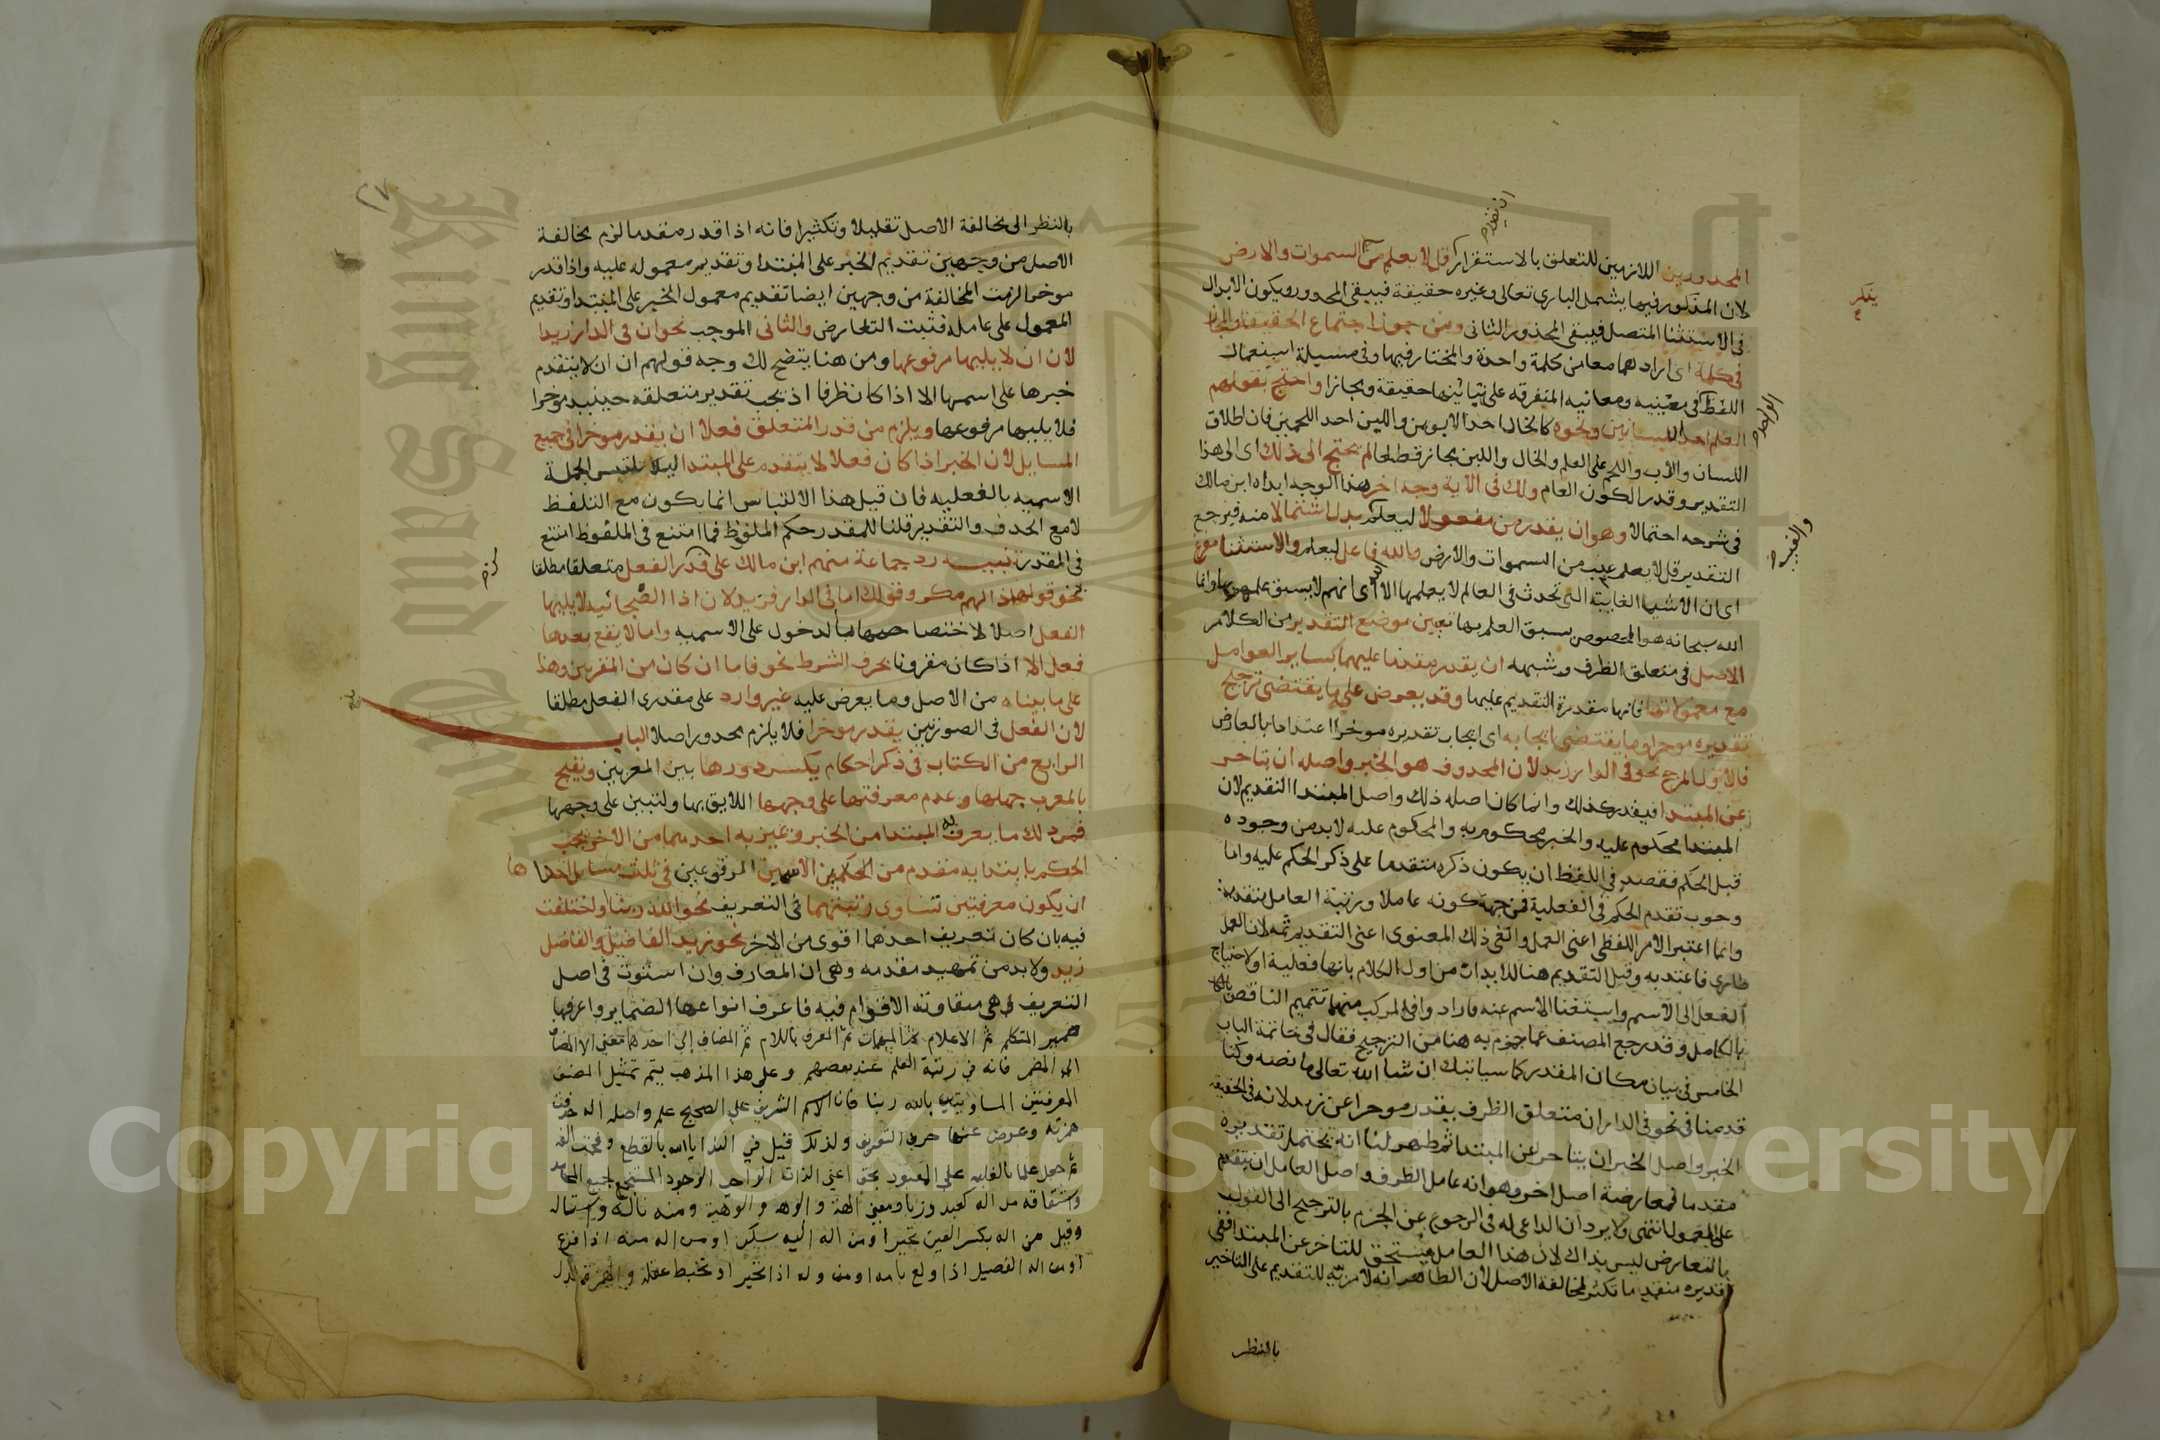 المحذورين اللازمين للتعلق بالاستقرار كقل لا يعلم من السموات والارض
لان المذكور فيها يشمل الباري تعالى وغيره حقيقة فيبقى المحذور ويكون الابدال
في الاستثنا المتصل فيبقى المحذور الثاني ومن جوز اجتماع الحقيقة والمجاز
في كلمة اي ارادهما معا من كلمة واحدة والمختار فيها وفي مسيلة استعمال
اللفظ في معنييه ومعانيه المتفرقة على انها حقيقة ومجازا واحتج بقولهم
القلم احد اللسانين ونحوه كالخال احد الابوين واللبن احد اللحمين فان اطلاق
اللسان والاب واللحم على القلم والخال واللبن مجاز قطعا لم يحتج الى ذلك اي الى هذا
التقدير وقدر الكون العام ولك في الاية وجه اخر هذا الوجه ابداه ابن مالك
في شرحه احتمالا وهو ان يقدر من مفعولا ليعلم بدل اشتمال منه فيرجع
التقدير قل لا يعلم غيب من السموات والارض فالله فاعل ليعلم والاستثنا مفرغ
اي ان الاشيا الغايبة التي تحدث في العالم لا يعلمها الا الله اي انهم لا يسبق علمهم بها وانما
الله سبحانه هو المخصوص بسبق العلم بها تعيين موضع التقدير من الكلام
الاصل في متعلق الظرف وشبهه ان يقدر مقدما عليهما كساير العوامل
مع معمولاتها فانها مقدرة التقديم عليها وقد يعرض على ما يقتضي ترجيح
تقديره موخرا وما يقتضي ايجابه اي ايجاب تقديره موخرا اعتدادا بالعارض
فالاول المرجح نحو في الدار زيد لان المحذوف هو الخبر واصله ان يتاخر
عن المبتدا فيقدر كذلك وانما كان اصله ذلك واصل المبتدا التقديم لان
المبتدا محكوم عليه والخبر محكوم به والمحكوم عليه لا بد من وجوده
قبل الحكم فقصد في اللفظ ان يكون ذكره متقدما على ذكر الحكم عليه واما
وجوب تقدم الحكم في الفعلية فمن جهة كونه عاملا ورتبة العامل متقدمة
وانما اعتبر الامر اللفظي اعني العمل والغي ذلك المعنوي اعني التقديم ثمة لان العمل
طاري فاعتد به وقيل التقديم هنا للايذان من اول الكلام بانها فعلية او لاحتياج
الفعل الى الاسم واستغنا الاسم عنه فاراد وافي المركب منهما تتميم الناقص
بالكامل وقد رجع المصنف عما جزم به هنا من الترجيح فقال في خاتمة الباب
الخامس في بيان مكان المقدر كما سياتيك ان شا الله تعالى ما نصه وكنا
قدمنا في نحو في الدار ان متعلق الظرف يقدر موخرا عن زيد لانه في الحقيقة
الخبر واصل الخبر ان يتاخر عن المبتدا ثم ظهر لنا انه يحتمل تقديره
مقدما لمعارضة اصل اخر وهو انه عامل الظرف واصل العامل ان يتقدم
على المعمول انتهى ولا يرد ان الداعي له في الرجوع عن الجزم بالترجيح الى القول
بالتعارض ليس بذاك لان هذا العامل مستحق للتاخر عن المبتدا ففي
تقديره متقدما تكثر لمخالفة الاصل لان الظاهر انه لا مزية للتقديم على التاخير
بالنظر
بالنظر الى مخالفة الاصل تقليلا وتكثيرا فانه اذا قدر مقدما لزم مخالفة
الاصل من وجهين تقديم الخبر على المبتدا وتقديم معموله عليه واذا قدر
موخرا لزمت المخالفة من وجهين ايضا تقديم معمول الخبر على المبتدا وتقديم
المعمول على عامله فثبت التعارض والثاني الموجب نحو ان في الدار زيدا
لان ان لا يليها مرفوعها ومن هنا يتضح لك وجه قولهم ان ان لا يتقدم
خبرها على اسمها الا اذا كان ظرفا اذ يجب تقدير متعلقه حينيد موخرا
فلا يليها مرفوعها ويلزم من قدر المتعلق فعلا ان يقدر موخرا في جميع
المسايل لان الخبر اذا كان فعلا لا يتقدم على المبتدا ليلا يلتبس الجملة
الاسميه بالفعليه فان قيل هذا الالتباس انما يكون مع التلفظ
لا مع الحذف والتقدير قلنا للمقدر حكم الملفوظ فما امتنع في الملفوظ امتنع
في المقدر تنبيه رد جماعة منهم ابن مالك على من قدر الفعل متعلقا مطلقا
نحو قوله اذا لهم مكر وقولك اما في الدار فزيد لان اذا الفجائية لا يليها
الفعل اصلا لاختصاصها بالدخول على الاسميه واما لا يقع بعدها
فعل الا اذا كان مقرونا بحرف الشرط نحو فاما ان كان من المقربين وهذا
على ما بيناه من الاصل وما يعرض عليه غير وارد على مقدري الفعل مطلقا
لان الفعل في الصورتين يقدر موخرا فلا يلزم محذور اصلا الباب
الرابع من الكتاب في ذكر احكام يكسر دورها بين المعربين ويقبح
بالمعرب جهلها وعدم معرفتها على وجهها اللايق بها ولتبين على وجهها
فمن ذلك ما يعرف به المبتدا من الخبر وتميز به احدهما من الاخر يجب
الحكم بابتدايه مقدم من الحكمين الاسمين المرفوعين في ثلث مسايل احدا ها
ان يكون معرفتين تتساوى رتبتهما في التعريف نحو الله ربنا او اختلفت
فيه بان كان تعريف احدهما اقوى من الاخر نحو زيد الفاضل والفاضل
زيد ولا بد من تمهيد مقدمه وهي ان المعارف وان استوت في اصل
التعريف فهي متفاوتة الاقدام فيه فاعرف انواعها الضماير واعرفها
ضمير المتكلم ثم الاعلام ثم المبهمات ثم المعرف باللام ثم المضاف الى احدها معنى الا المضاف
الى المضمر فانه في رتبة العلم عند بعضهم وعلى هذا المذهب يتم تمثيل المصنف
المعرفتين المساويتين بالله ربنا فان الاسم الشريف على الصحيح علم واصله اله حذفت
همزته وعوض عنها حرف التعريف ولذلك قيل في الندا يا الله بالقطع
ثم جعل علما بالغلبه على المعبود بحق اعني الذات الواجب الوجود المستجمع لجميع المحامد
واشتقاقه من اله كعبد وزنا ومعنى الهة والوهة والوهية ومنه تاله واستاله
وقيل من اله بكسر العين تحيرا ومن اله اليه سكن او من اله منه اذا فزع
او من اله الفصيل اذا ولع بامه او من وله اذا تحير او تخبط عقله والهمزة بدل